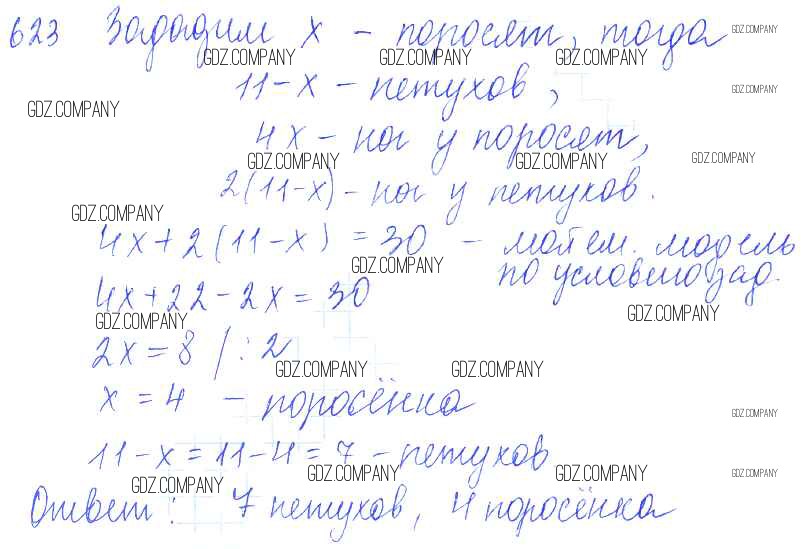 623 Зададим x - поросят, тогда
GDZ.COMPANY
GDZ.COMPANY GDZ.COMPANY GDZ.COMPANY
11-x - петухов,
GDZ.COMPANY
GDZ.COMPANY
4x - ног у поросят,
GDZ.COMPANY GDZ.COMPANY GDZ.COMPANY
2(11-x) - ног у петухов.
GDZ.COMPANY
4x+2(11-x) = 30 - матем. модель
по условию зад.
GDZ.COMPANY
4x+22-2x=30
GDZ.COMPANY GDZ.COMPANY
2x=8 |:2
GDZ.COMPANY GDZ.COMPANY
x=4 - поросёнка
GDZ.COMPANY
11-x=11-4=7 - петухов
GDZ.COMPANY GDZ.COMPANY GDZ.COMPANY GDZ.COMPANY
Ответ: 7 петухов, 4 поросёнка